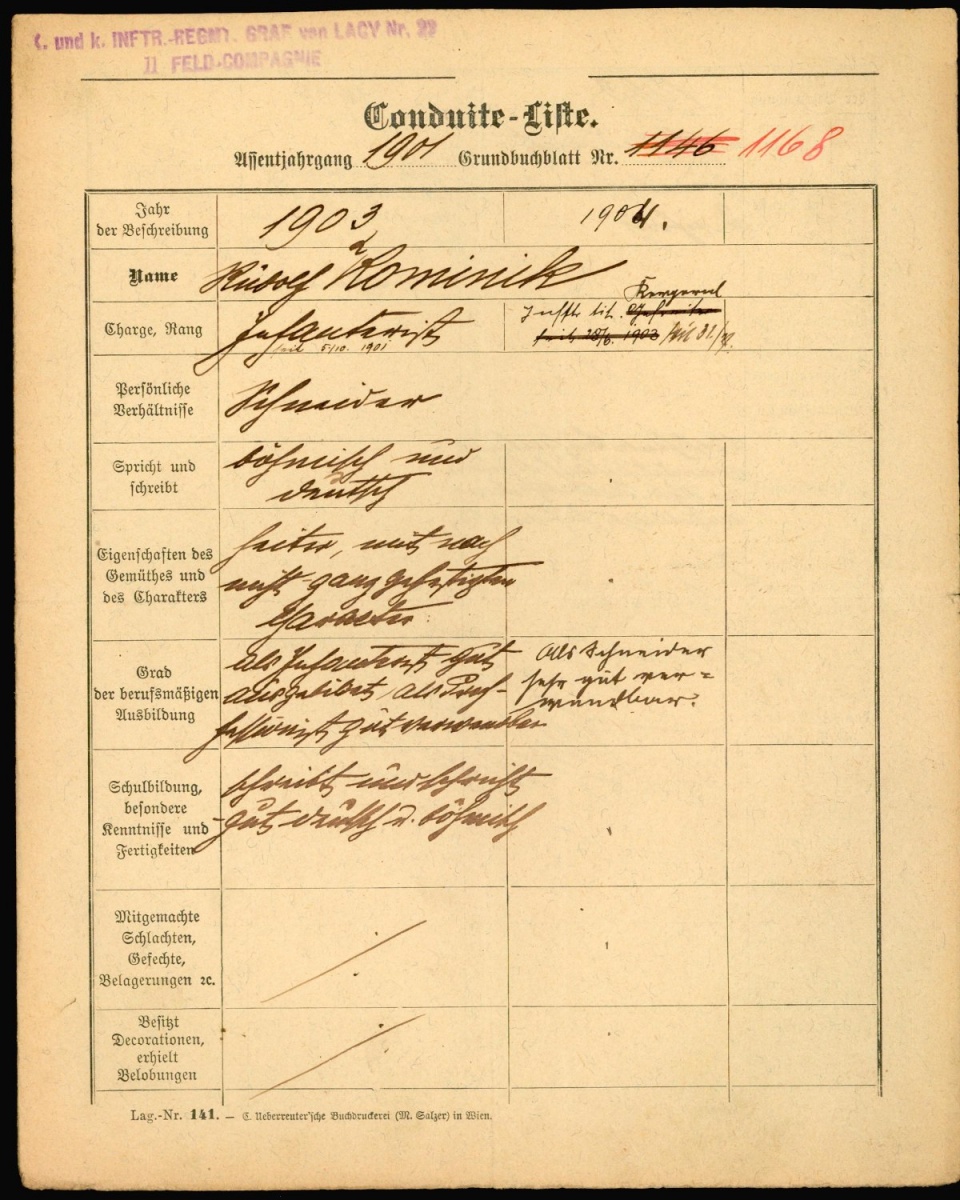 k. und k. INFTR.-REGMT. GRAF von LACY Nr. 22
11 FELD-COMPAGNIE
Conduite-Liste.
Assentjahrgang 1901 Grundbuchblatt Nr. 1146 1168
Jahr
der Beschreibung
1903
1904.
Name
Rudolf Kominik
Charge, Rang
Infanterist
seit 5/10. 1901
Infst. tit. Korporal
Gefreiter
seit 28/6. 1903 seit 31/
Persönliche
Verhältnisse
Schneider
Spricht und
schreibt
böhmisch und
deutsch
Eigenschaften des
Gemüthes und
des Charakters
heiter, mit noch
nicht ganz gefestigten
Caracter
Grad
der berufsmäßigen
Ausbildung
als Infanterist gut
ausgebildet, als Prof-
fessionist gut verwendbar
Als Schneider
sehr gut ver=
wendbar.
Schulbildung,
besondere
Kenntnisse und
Fertigkeiten
schreibt und spricht
gut deutsch u. böhmisch
Mitgemachte
Schlachten,
Gefechte,
Belagerungen ꝛc.
Besitzt
Decorationen,
erhielt
Belobungen
Lag.-Nr. 141. — C. Ueberreuter'sche Buchdruckerei (M. Salzer) in Wien.